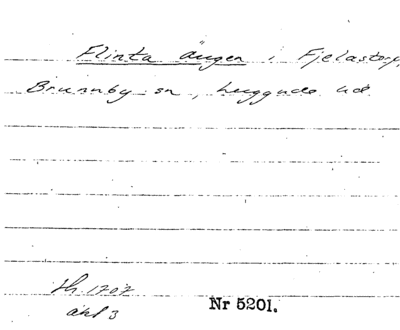 Flinta ängen i Fjelastorp,
Brunnby sn, Luggude hd
Th 1707
akt 3
Nr 5201.